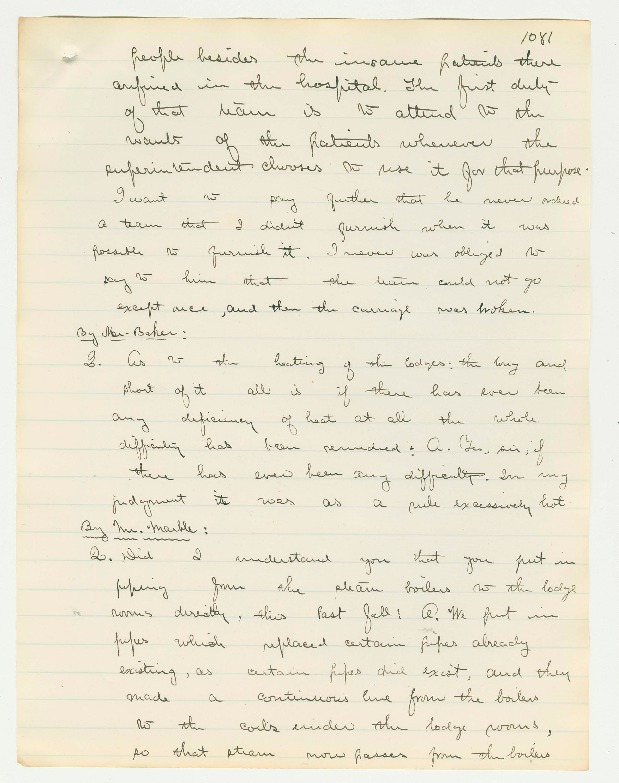 1081
people besides the insane patients there
confined in the hospital. The first duty
of that team is to attend to the
wants of the patients whenever the
superintendent chooses to use it for that purpose.
I want to say further that he never ordered
a team that I didn't furnish when it was
possible to furnish it. I never was obliged to
say to him that the team could not go
except once, and then the carriage was broken.
By Mr. Baker:
Q. As to the heating of the lodges: the long and
short of it all is if there has ever been
any deficiency of heat at all the whole
difficulty has been remedied? A. Yes, sir, if
there has ever been any difficulty. In my
judgment it was as a rule excessively hot
By Mr. Marble:
Q. Did I understand you that you put in
piping from the steam boilers to the lodge
rooms directly, this last fall? A. We put in
pipes which replaced certain pipes already
existing, as certain pipes did exist, and they
made a continuous line from the boilers
to the coils under the lodge rooms,
so that steam now passes from the boilers